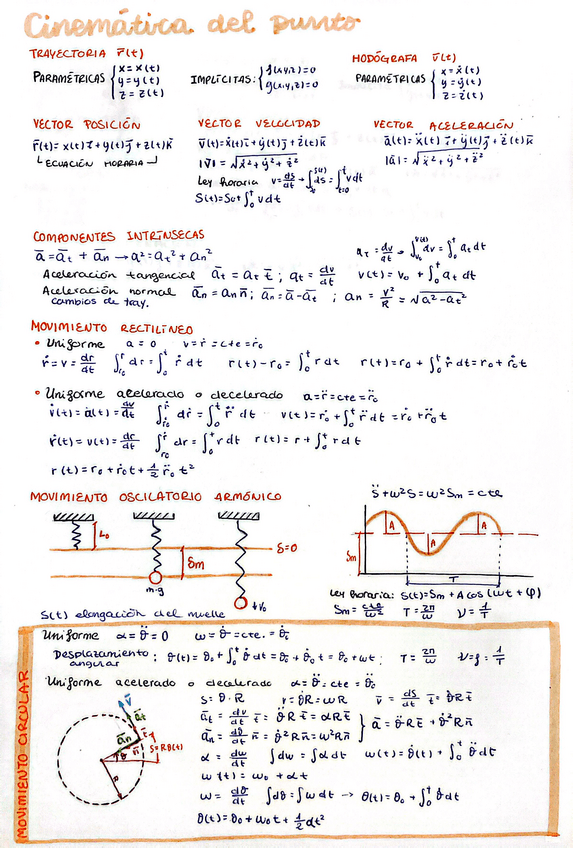 Cinemática del punto
TRAYECTORIA r̄(t)
PARAMÉTRICAS { x = x(t) y = y(t) z = z(t)
IMPLÍCITAS: { f(x,y,z)=0 g(x,y,z)=0
HODÓGRAFA v̄(t)
PARAMÉTRICAS { x = ẋ(t) y = ẏ(t) z = ż(t)
VECTOR POSICIÓN
r̄(t) = x(t) ī + y(t) j̄ + z(t) k̄
ECUACIÓN HORARIA
VECTOR VELOCIDAD
v̄(t) = ẋ(t) ī + ẏ(t) j̄ + ż(t) k̄
|v̄| = √(ẋ² + ẏ² + ż²)
Ley horaria v = ds/dt → ∫ ds = ∫ v dt
S(t) = S₀ + ∫₀ᵗ v dt
VECTOR ACELERACIÓN
ā(t) = ẍ(t) ī + ÿ(t) j̄ + z̈(t) k̄
|ā| = √(ẍ² + ÿ² + z̈²)
COMPONENTES INTRÍNSECAS
ā = āt + ān → a² = at² + an²
at = dv/dt → ∫ dv = ∫₀ᵗ at dt
Aceleración tangencial āt = at t̄ ; at = dv/dt v(t) = v₀ + ∫₀ᵗ at dt
Aceleración normal ān = an n̄ ; ān = ā - āt ; an = v²/R = √(a² - at²)
cambios de tray.
MOVIMIENTO RECTILÍNEO
• Uniforme a = 0 v = ṙ = cte = ṙ₀
ṙ = v = dr/dt ∫ dr = ∫₀ᵗ ṙ dt r(t) - r₀ = ∫₀ᵗ r dt r(t) = r₀ + ∫₀ᵗ ṙ dt = r₀ + ṙ₀t
• Uniforme acelerado o decelerado a = r̈ = cte = r̈₀
v̇(t) = a(t) = dv/dt ∫ dṙ = ∫₀ᵗ r̈ dt v(t) = ṙ₀ + ∫₀ᵗ r̈ dt = ṙ₀ + r̈₀t
ṙ(t) = v(t) = dr/dt ∫ dr = ∫₀ᵗ r dt r(t) = r + ∫₀ᵗ r dt
r(t) = r₀ + ṙ₀t + 1/2 r̈₀ t²
MOVIMIENTO OSCILATORIO ARMÓNICO
S̈ + ω²S = ω²Sm = cte
L₀
δ=0
δm
m·g
v₀
A
A
A
Sm
T
S(t) elongación del muelle
Ley horaria: S(t) = Sm + A cos (ωt + φ)
Sm = cte/ω² T = 2π/ω ν = 1/T
MOVIMIENTO CIRCULAR
Uniforme α = θ̈ = 0 ω = θ̇ = cte. = θ̇₀
Desplazamiento angular : θ(t) = θ₀ + ∫₀ᵗ θ̇ dt = θ₀ + θ̇₀t = θ₀ + ωt ; T = 2π/ω ν = f = 1/T
Uniforme acelerado o decelerado α = θ̈ = cte = θ̈₀
S = θ·R v = θ̇R = ωR v̄ = ds/dt t̄ = θ̇R t̄
āt = dv/dt t̄ = θ̈R t̄ = αR t̄
ān = dθ/dt n̄ = θ̇²R n̄ = ω²R n̄ } ā = θ̈R t̄ + θ̇²R n̄
α = dω/dt ∫dω = ∫α dt ω(t) = θ̇(t) + ∫₀ᵗ θ̈ dt
ω(t) = ω₀ + αt
ω = dθ/dt ∫dθ = ∫ω dt → θ(t) = θ₀ + ∫₀ᵗ θ̇ dt
θ(t) = θ₀ + ω₀t + 1/2 αt²
v̄
āt
t̄
ān
n̄
θ
S = Rθ(t)
R